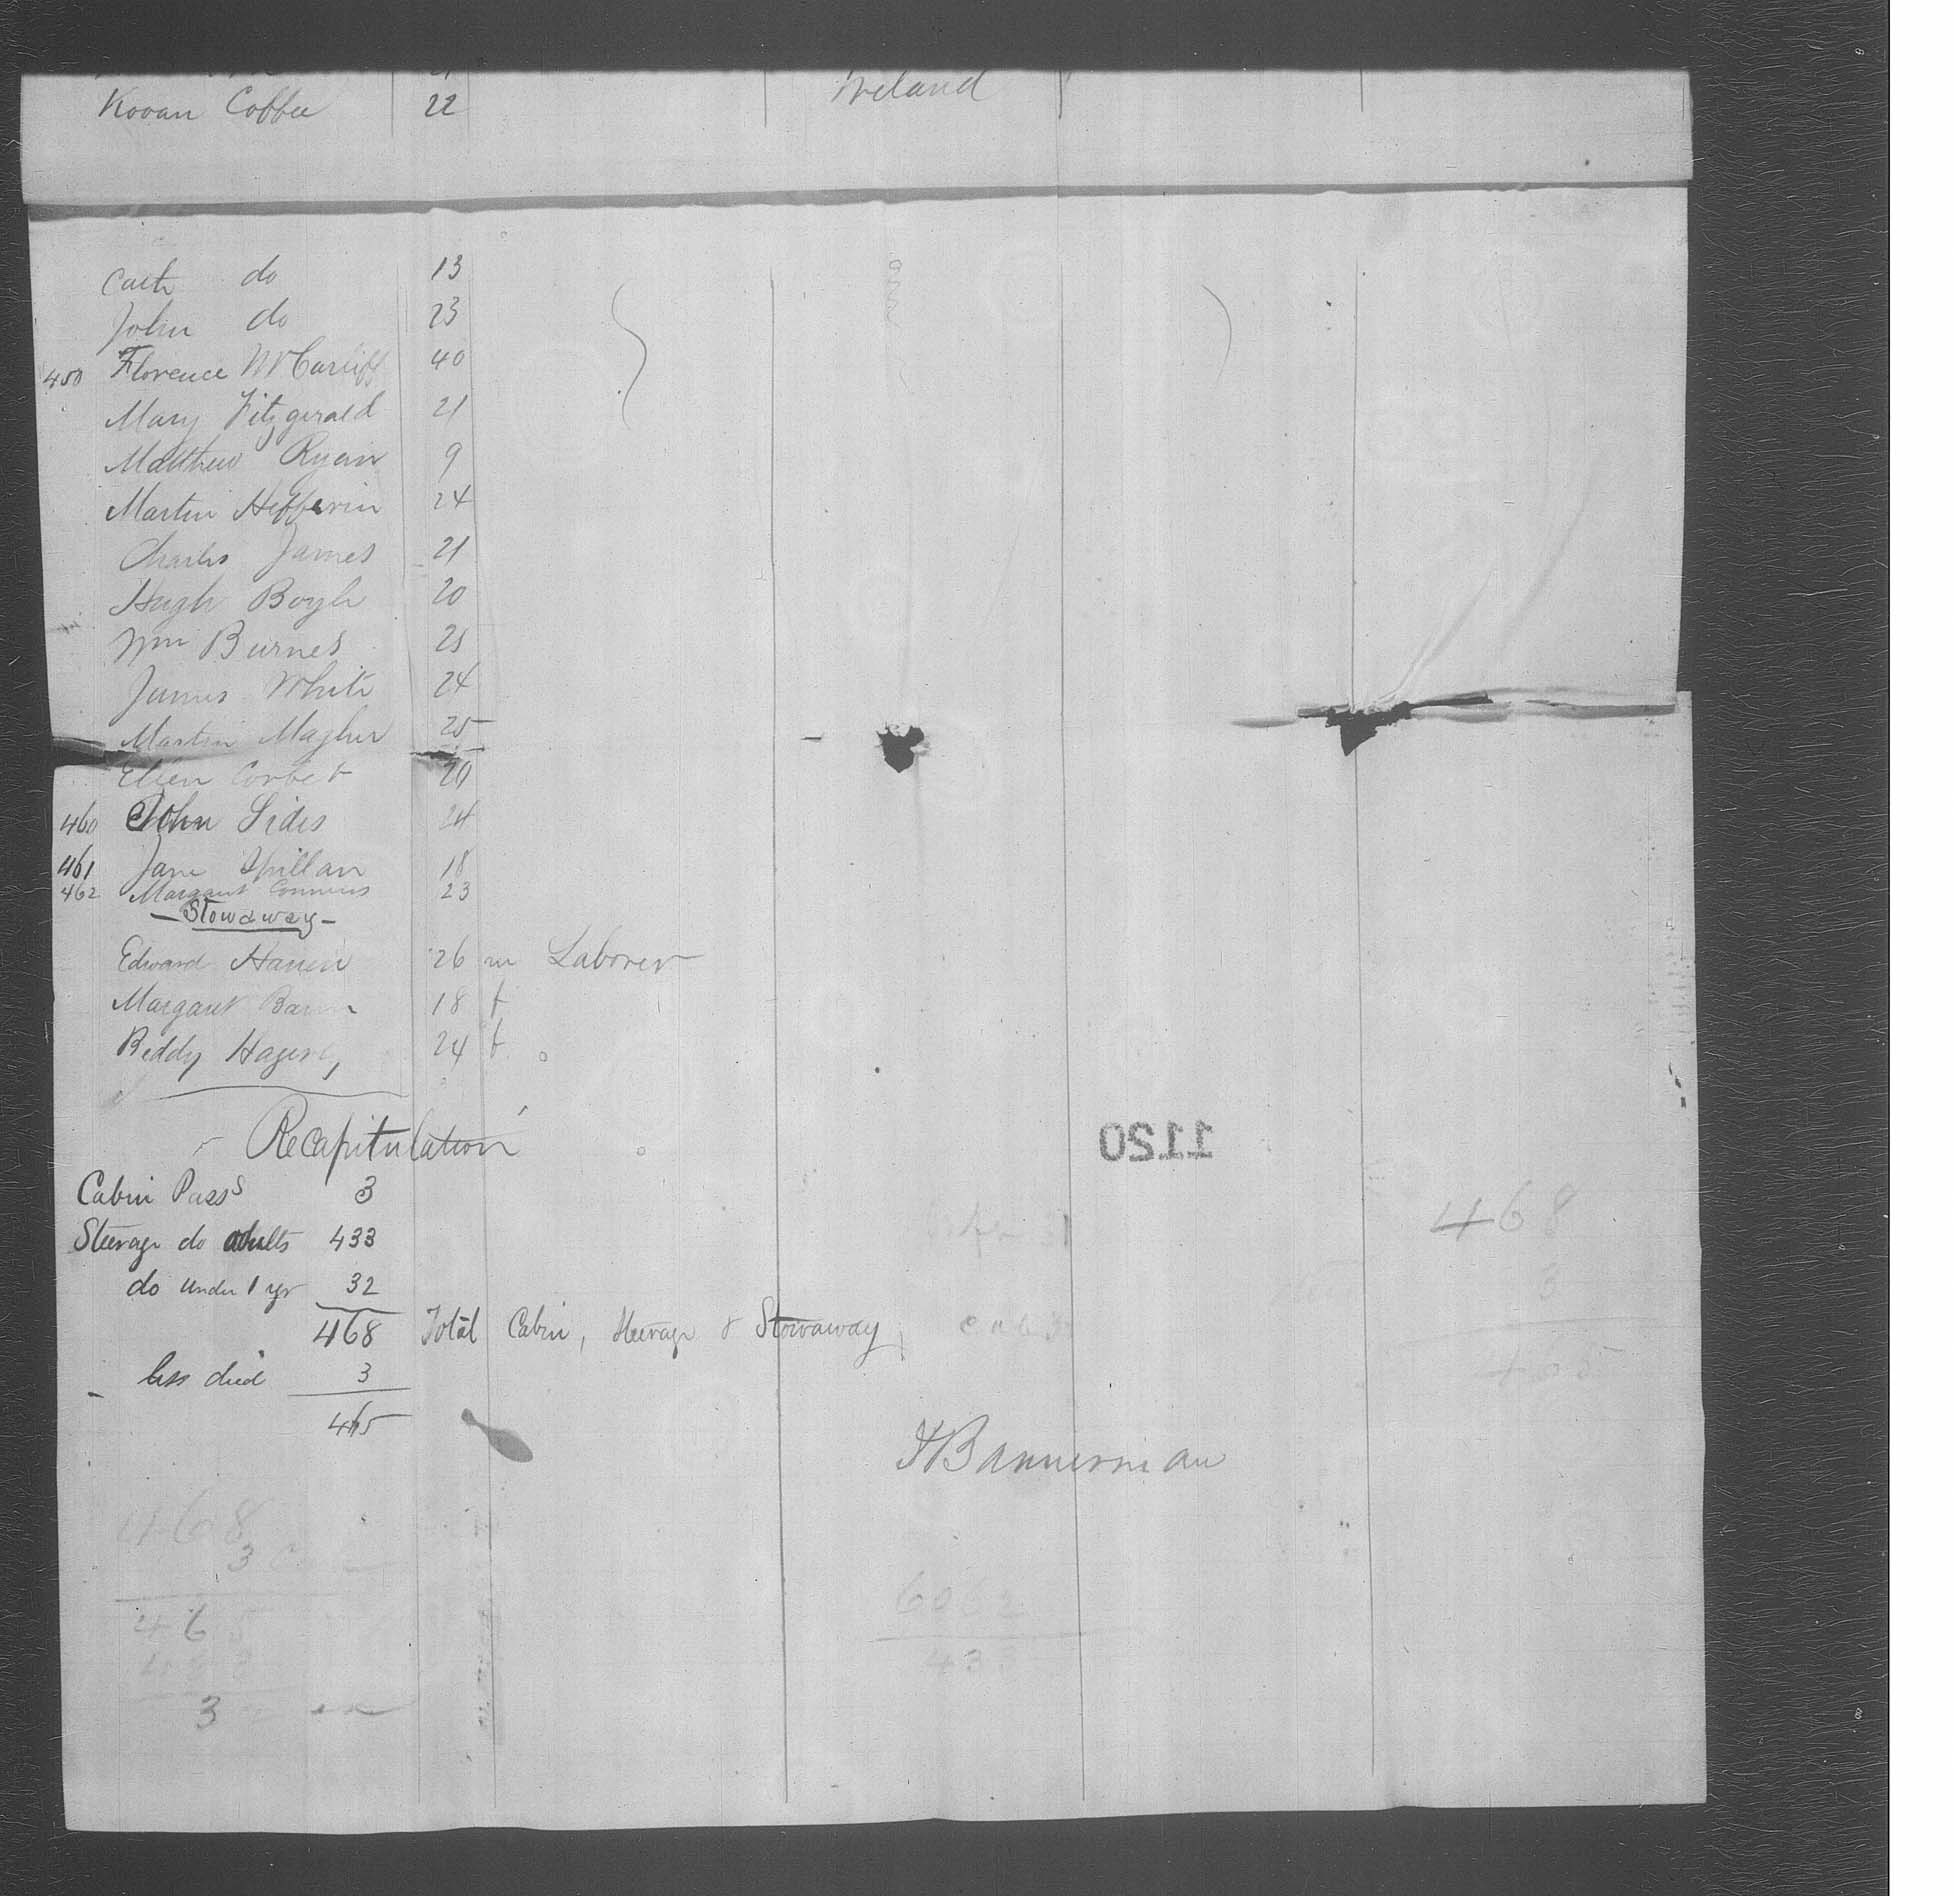 Ireland
Kovan Coffee 22
Cath do 13
John do 23
450 Florence McCarliff 40
Mary Fitzgerald 21
Matthew Ryan 9
Martin Hefferin 24
Charles James 21
Hugh Boyle 20
Wm Burnes 25
James White 24
Martin Magher 25
Ellen Corbet 20
460 John Sides 24
461 Jane Spillan 18
462 Margaret Conners 23
- Stowaway -
Edward 26 m Laborer
Margaret 18 f
Beddy Hagerty 24 f
Recapitulation
Cabin Passs 3
Steerage do adults 433
do under 1 yr 32
468 Total Cabin, Steerage & Stowaway
less died 3
465
1120
468
3
465
HBannerman
468
3
465
433
3
6062
433